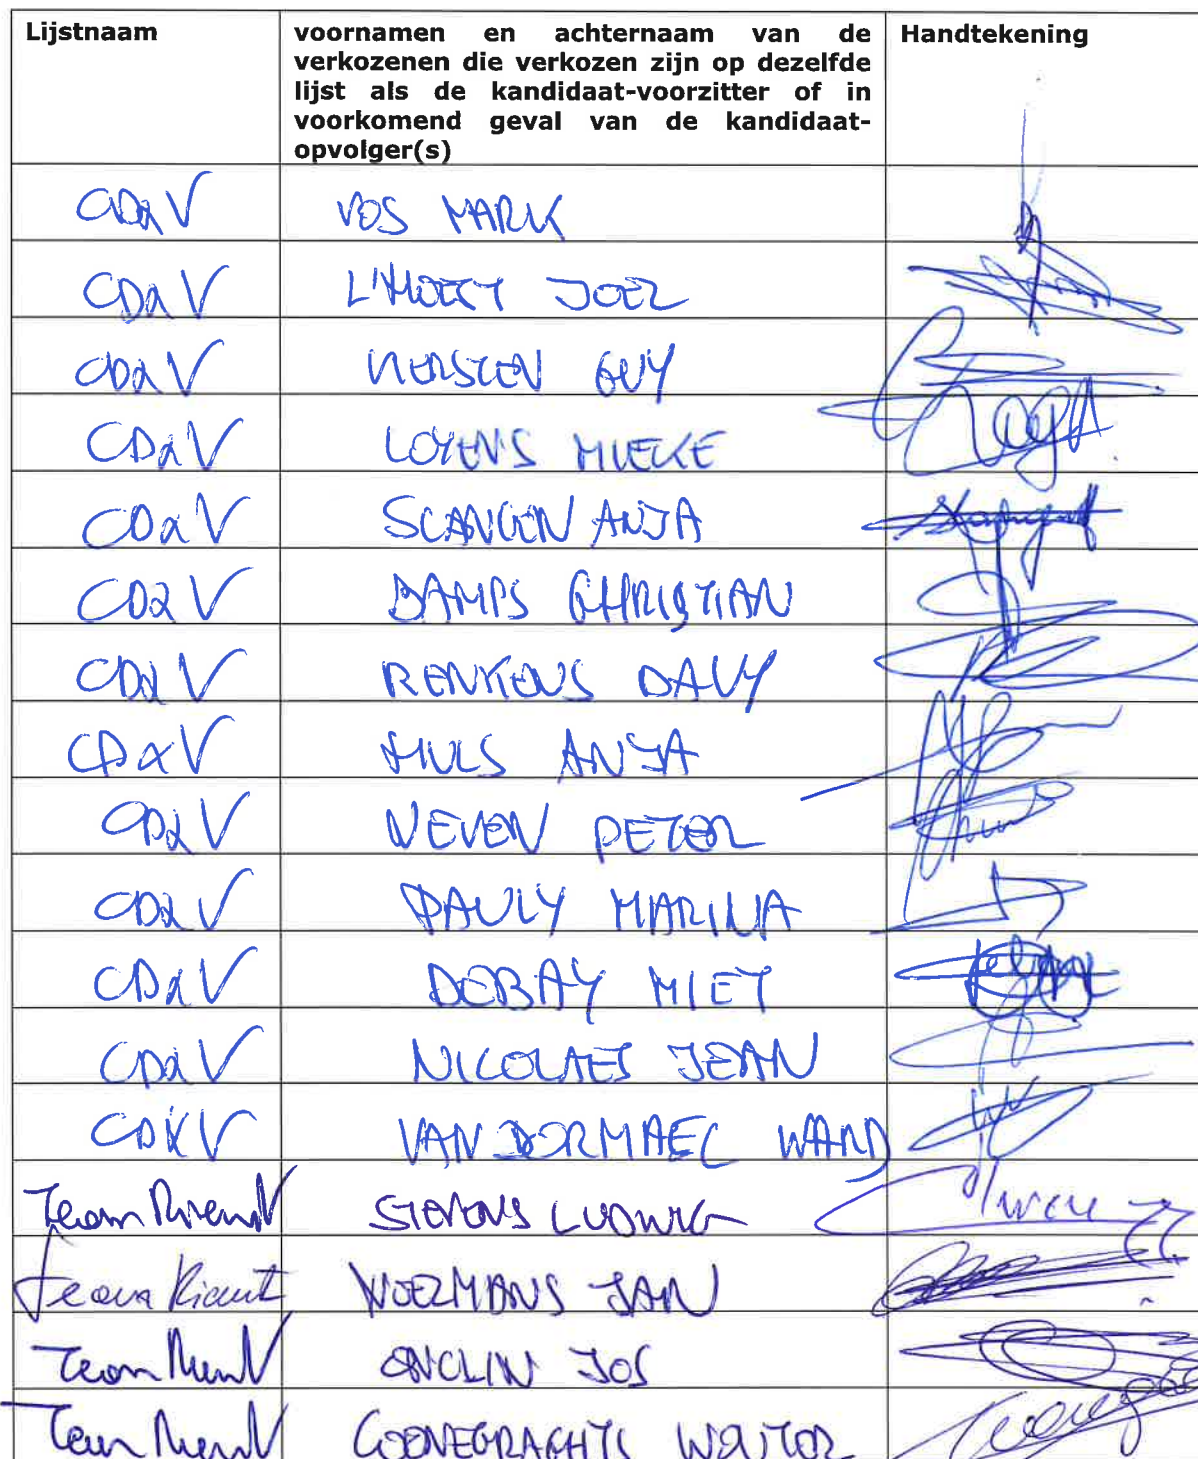 Lijstnaam
voornamen en achternaam van de
verkozenen die verkozen zijn op dezelfde
lijst als de kandidaat-voorzitter of in
voorkomend geval van de kandidaat-
opvolger(s)
Handtekening
CD&V VOS MARK
CD&V L'HOEST JOEL
CD&V KERSTEN GUY
CD&V LOYENS MIEKE
CD&V SLANGEN ANJA
CD&V BAMPS CHRISTIAN
CD&V RENKENS DAVY
CD&V HULS ANJA
CD&V NEVEN PETER
CD&V PAULY MARINA
CD&V DEBAY MIET
CD&V NICOLAES JEAN
CD&V VAN DORMAEL WARD
Team STEVENS LUDWIG
Team JAN
Team ONCLIN JOS
Team COENEGRACHTS WOUTER